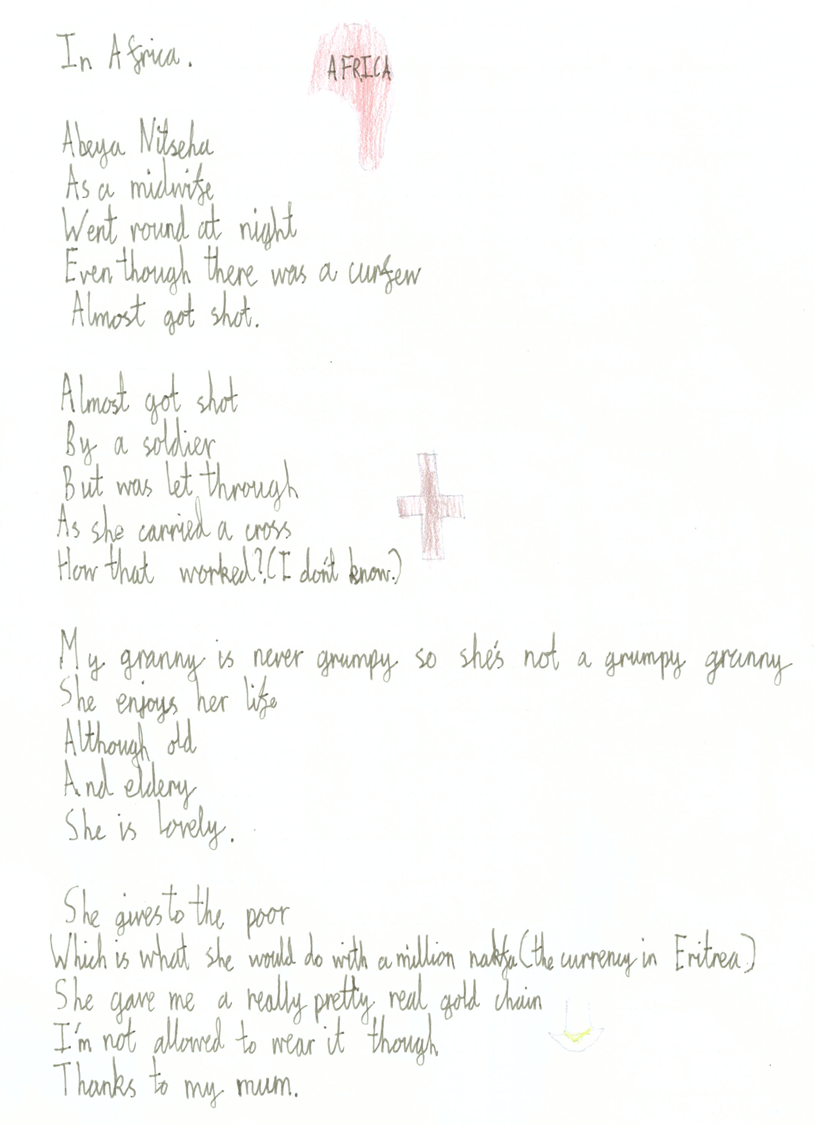 In Africa.
AFRICA
Abeya Nitseha
As a midwife
Went round at night
Even though there was a curfew
Almost got shot.
Almost got shot
By a soldier
But was let through
As she carried a cross
How that worked?(I don't know.)
My granny is never grumpy so she's not a grumpy granny
She enjoys her life
Although old
And eldery
She is lovely.
She gives to the poor
Which is what she would do with a million nakfa(the currency in Eritrea.)
She gave me a really pretty real gold chain
I'm not allowed to wear it though
Thanks to my mum.